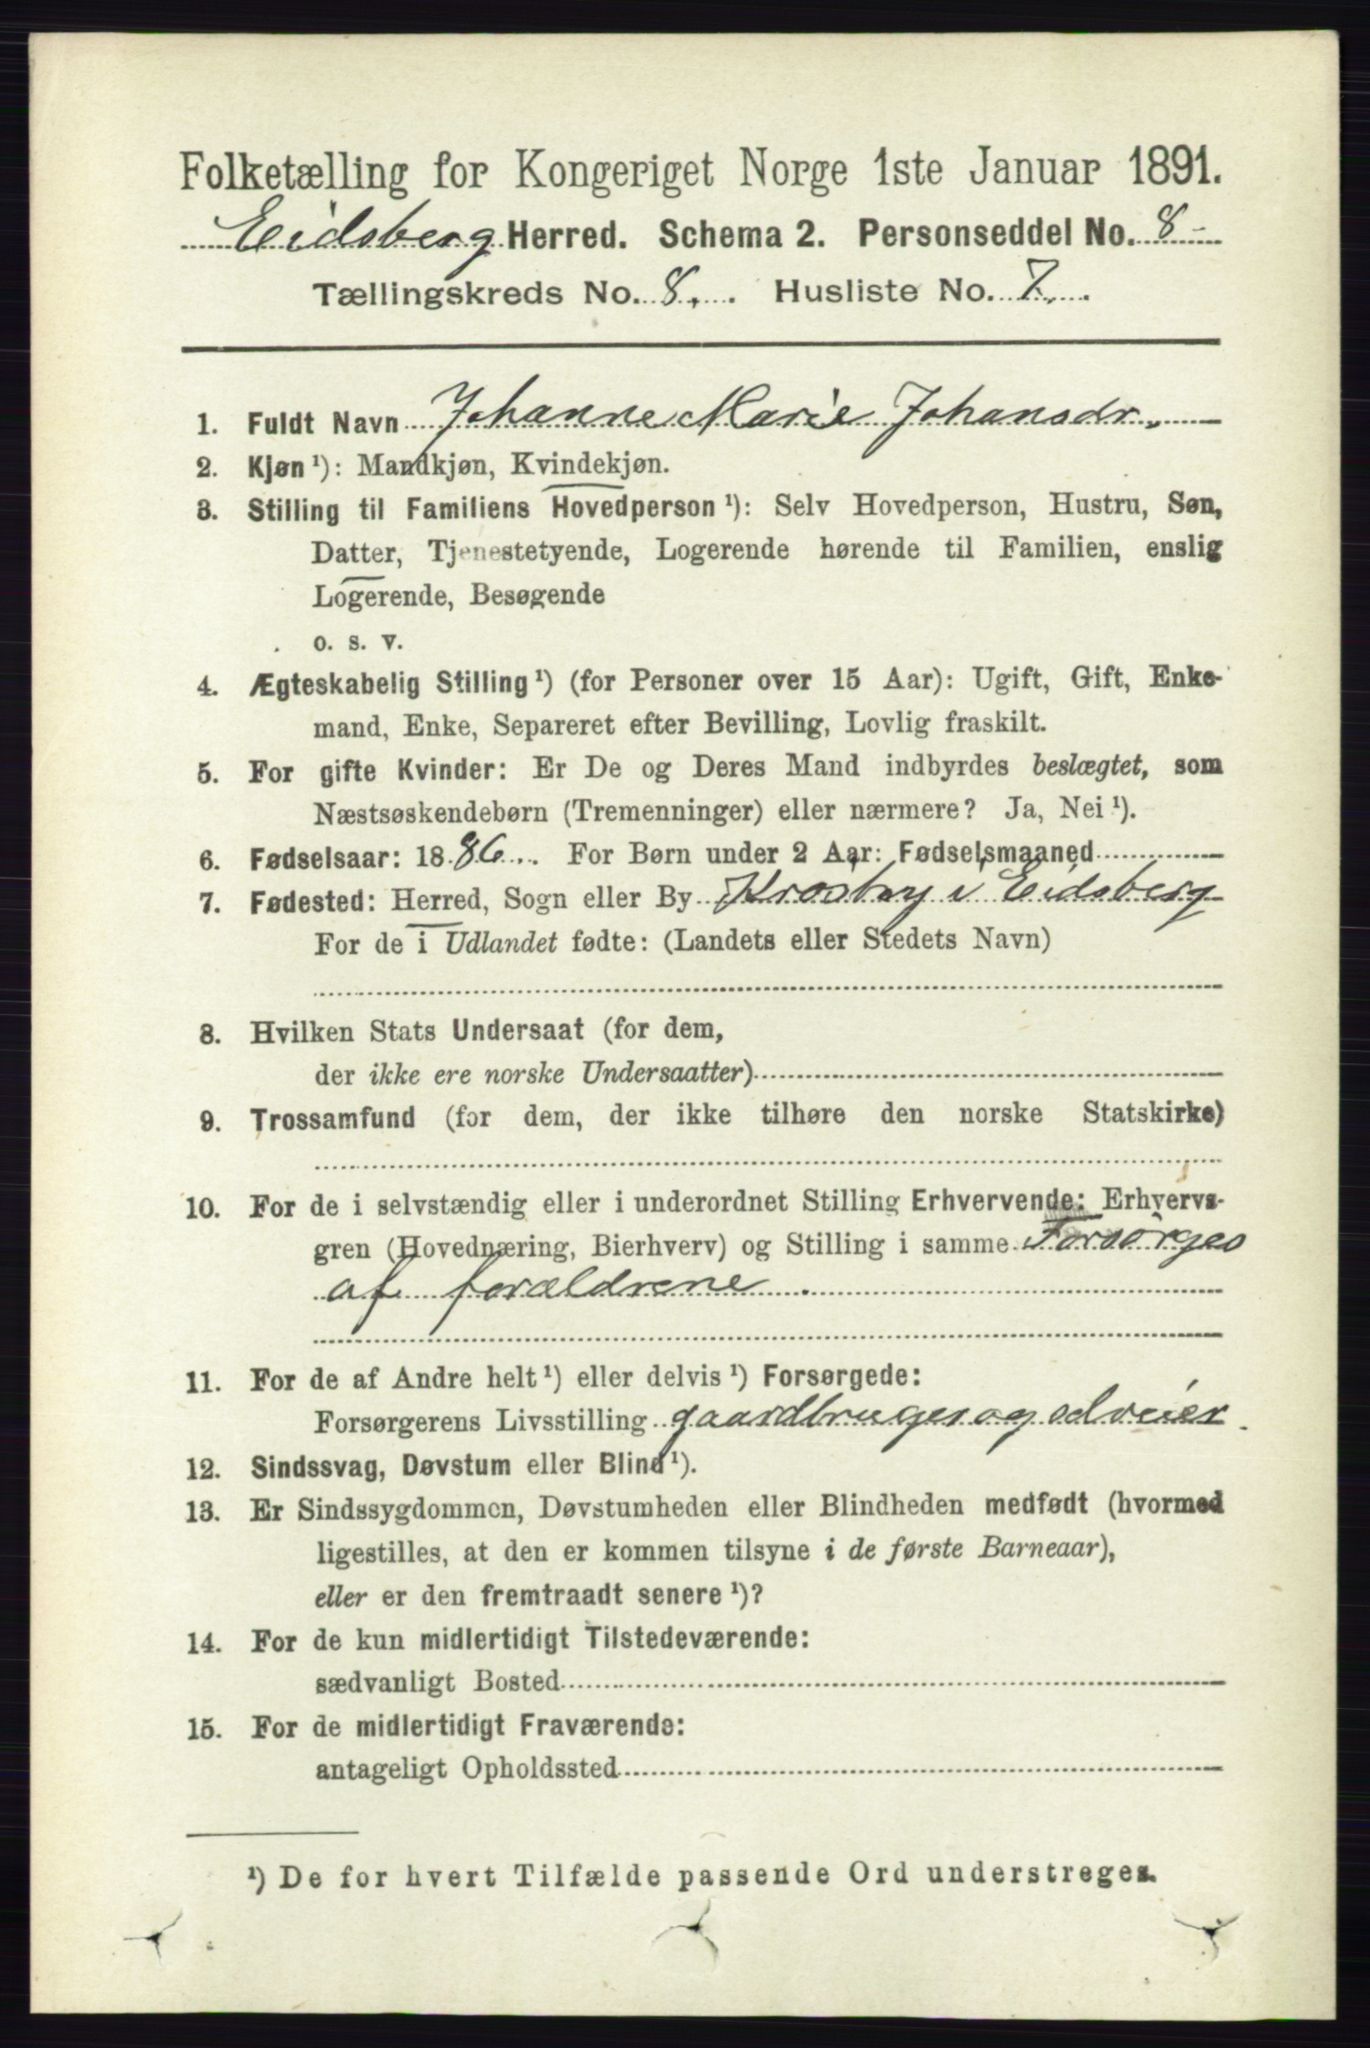 Folketælling for Kongeriget Norge 1ste Januar 1891.
Eidsberg Herred. Schema 2. Personseddel No. 8
Tællingskreds No. 8. Husliste No. 7.
1. Fuldt Navn Johanne Marie Johansdr.
2. Kjøn ¹): Mandkjøn, Kvindekjøn.
3. Stilling til Familiens Hovedperson ¹): Selv Hovedperson, Hustru, Søn,
Datter, Tjenestetyende, Logerende hørende til Familien, enslig
Logerende, Besøgende
o. s. v.
4. Ægteskabelig Stilling ¹) (for Personer over 15 Aar): Ugift, Gift, Enke-
mand, Enke, Separeret efter Bevilling, Lovlig fraskilt.
5. For gifte Kvinder: Er De og Deres Mand indbyrdes beslægtet, som
Næstsøskendebørn (Tremenninger) eller nærmere? Ja, Nei ¹).
6. Fødselsaar: 1886. For Børn under 2 Aar: Fødselsmaaned
7. Fødested: Herred, Sogn eller By Krosby i Eidsberg
For de i Udlandet fødte: (Landets eller Stedets Navn)
8. Hvilken Stats Undersaat (for dem,
der ikke ere norske Undersaatter)
9. Trossamfund (for dem, der ikke tilhøre den norske Statskirke)
10. For de i selvstændig eller i underordnet Stilling Erhvervende: Erhvervs-
gren (Hovednæring, Bierhverv) og Stilling i samme Forsørges
af forældrene.
11. For de af Andre helt ¹) eller delvis ¹) Forsørgede:
Forsørgerens Livsstilling gaardbruger og selveier.
12. Sindssvag, Døvstum eller Blind ¹).
13. Er Sindssygdommen, Døvstumheden eller Blindheden medfødt (hvormed
ligestilles, at den er kommen tilsyne i de første Barneaar),
eller er den fremtraadt senere ¹)?
14. For de kun midlertidigt Tilstedeværende:
sædvanligt Bosted
15. For de midlertidigt Fraværende:
antageligt Opholdssted
¹) De for hvert Tilfælde passende Ord understreges.